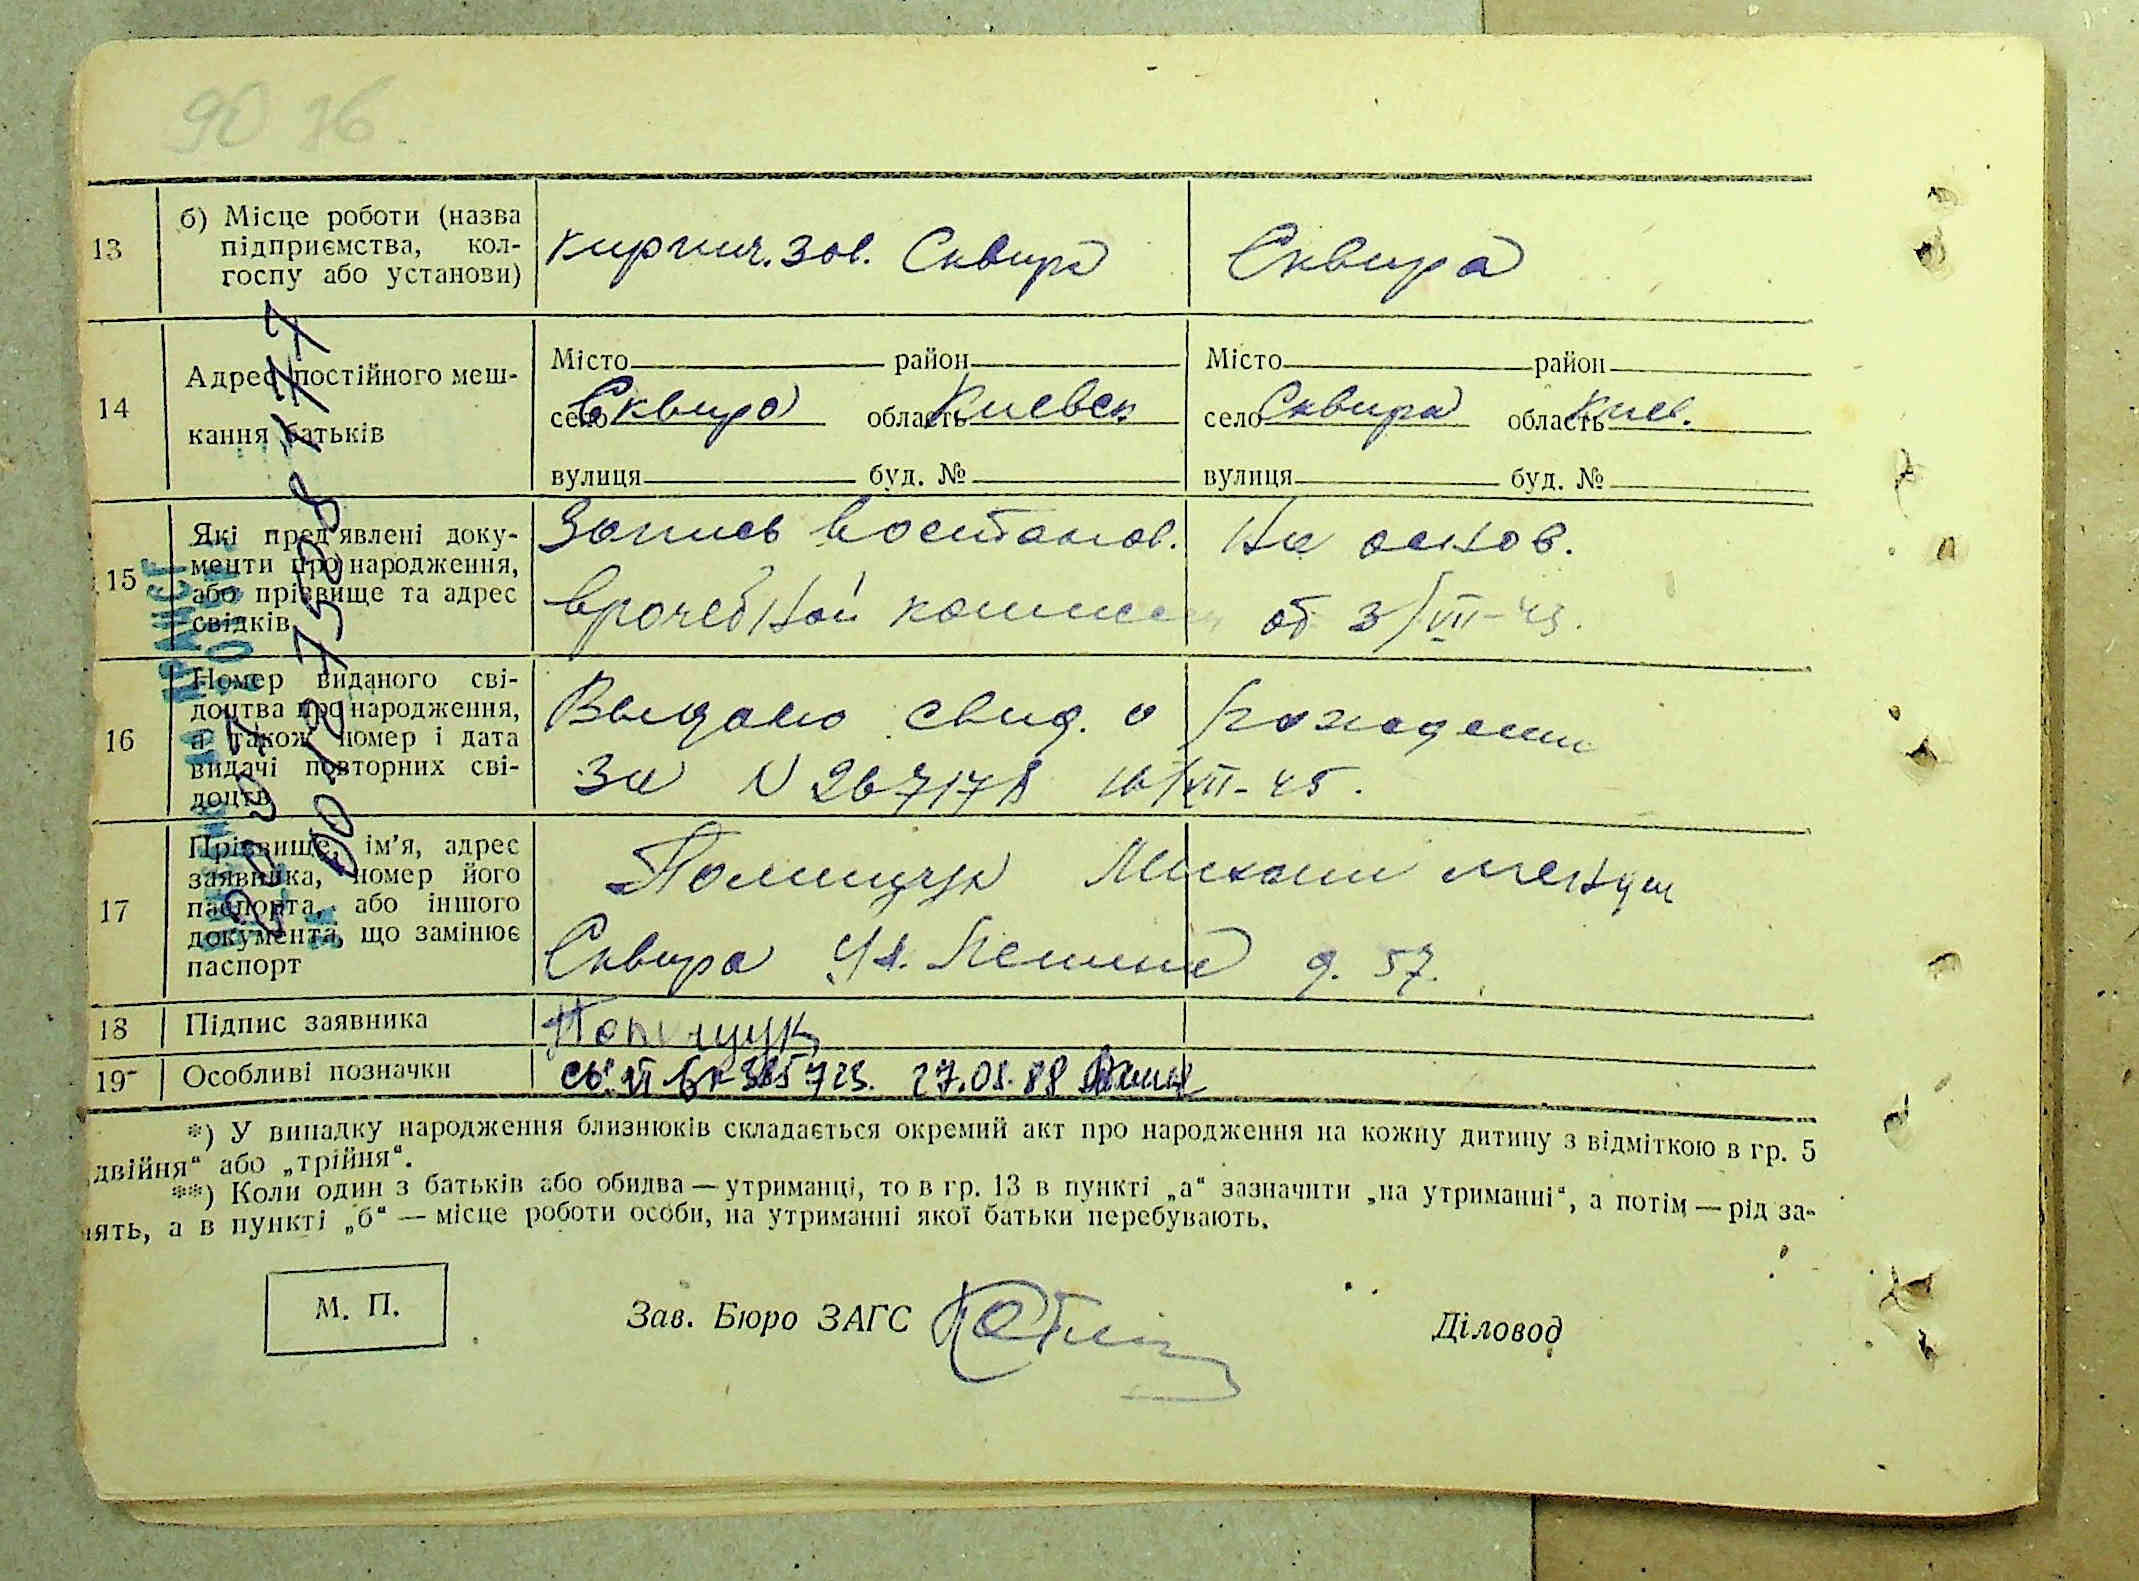 90 76
13
б) Місце роботи (назва
підприємства, кол-
госпу або установи)
кирпич. зав. Сквира
Сквира
14
Адрес постійного меш-
кання батьків
Місто район
село Сквира область Киевск
вулиця буд. №
Місто район
село Сквира область Киев.
вулиця буд. №
15
Які пред'явлені доку-
менти про народження,
або прізвище та адрес
свідків
Запись востанов. На основ.
врачебной комисс от 3/VII-45.
16
Номер виданого сві-
доцтва про народження,
а також номер і дата
видачі повторних сві-
доцтв
Выдано свид. о рождении
за N 267178 16/VII-45.
17
Прізвище, ім'я, адрес
заявника, номер його
паспорта, або іншого
документа, що замінює
паспорт
Полищук Михаил
Сквира Ул. Ленина д. 57.
18
Підпис заявника
Полищук
19
Особливі позначки
27.01.88
*) У випадку народження близнюків складається окремий акт про народження на кожну дитину з відміткою в гр. 5
двійня“ або „трійня“.
**) Коли один з батьків або обидва — утриманці, то в гр. 13 в пункті „а“ зазначити „на утриманні“, а потім — рід за-
нять, а в пункті „б“ — місце роботи особи, на утриманні якої батьки перебувають.
М. П.
Зав. Бюро ЗАГС
Діловод